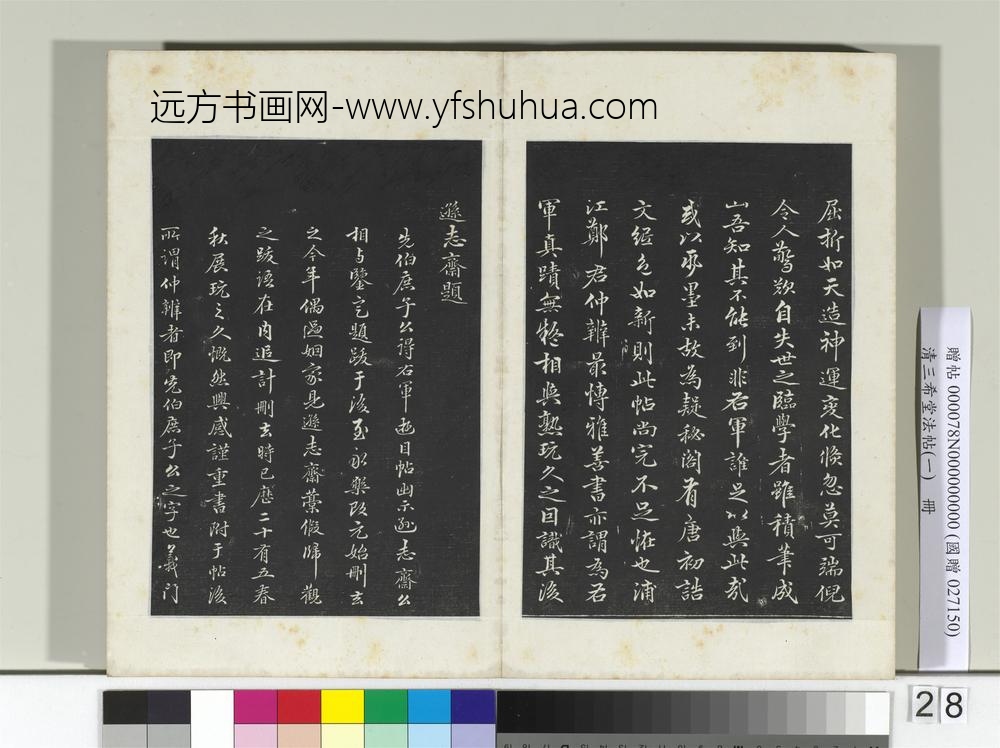 远方书画网-www.yfshuhua.com
屈折如天造神運變化倏忽莫可端倪
令人驚歎自失世之臨學者雖積筆成
山吾知其不能到非右軍誰足以與此哉
或以麥墨未故為疑秘閣有唐初誥
文紙色如新則此帖尚完不足怪也浦
江鄭君仲辨最愽雅善書亦謂為右
軍真蹟無疑相與熟玩久之因識其後
遜志齋題
先伯庶子公得右軍遊目帖出示遜志齋公
相與鑒定題跋于後至永樂改元始刪去
之今年偶過姻家見遜志齋藁假歸觀
之跋語在內追計刪去時已歷二十有五春
秋展玩之久慨然興感謹重書附于帖後
所謂仲辨者即先伯庶子公之字也義門
贈帖 000078N000000000 (國贈 027150)
清三希堂法帖(一) 冊
28